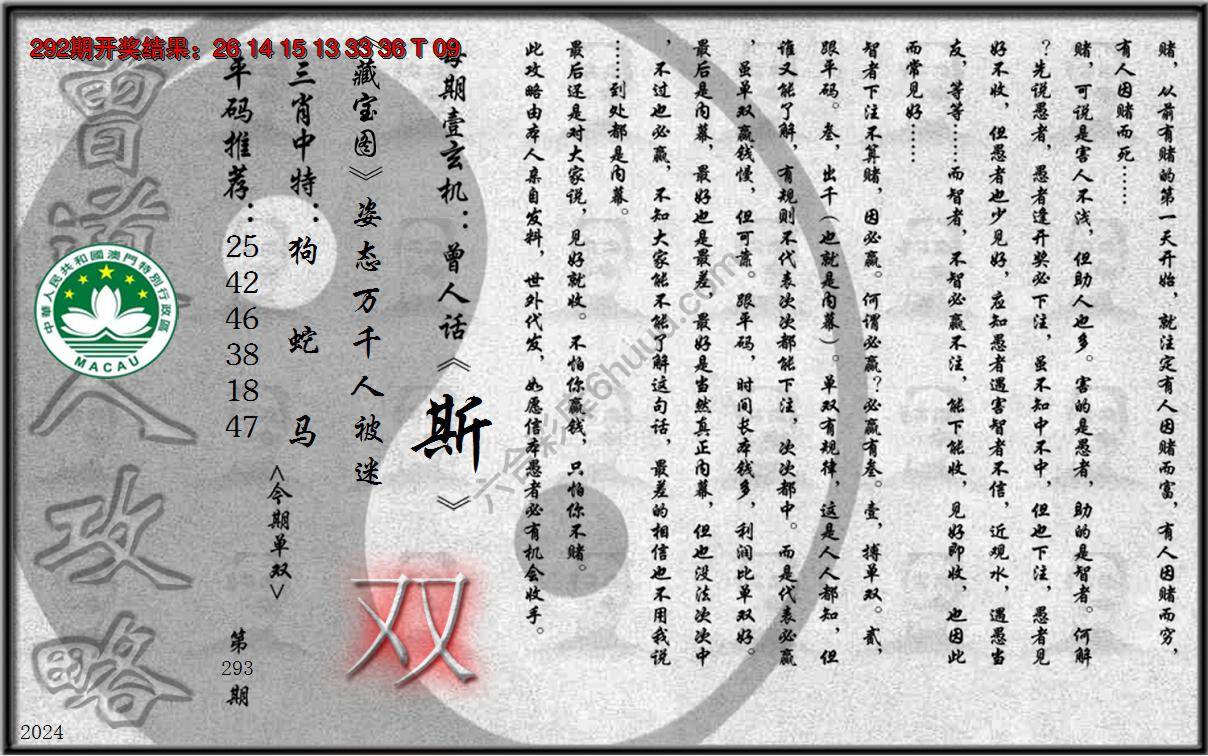 292期开奖结果：26 14 15 13 33 36 T 09
赌，从前有赌的第一天开始，就注定有人因赌而富，有人因赌而穷，
有人因赌而死……
赌，可说是害人不浅，但助人也多。害的是愚者，助的是智者。何解
？先说愚者，愚者逢开奖必下注，虽不知中不中，但也下注，愚者见
好不收，但愚者也少见好，应知愚者遇害智者不信，近观水，遇愚当
友，等等……而智者，不智必赢不注，能下能收，见好即收，也因此
而常见好……
智者下注不算赌，因必赢。何谓必赢？必赢有叁。壹，搏单双。贰，
跟平码。叁，出千（也就是内幕）。单双有规律，这是人人都知，但
谁又能了解，有规则不代表次次都能下注，次次都中。而是代表必赢
，虽单双赢钱慢，但可靠。跟平码，时间长本钱多，利润比单双好。
最后是内幕，最好也是最差，最好是当然真正内幕，但也没法次次中
，不过也必赢，不知大家能不能了解这句话，最差的相信也不用我说
……到处都是内幕。
最后还是对大家说，见好就收。不怕你赢钱，只怕你不赌。
此攻略由本人亲自发料，世外代发，如愿信本愚者必有机会收手。
每期壹玄机：曾人话《斯》
《藏宝图》姿态万千人被迷
三肖中特：狗 蛇 马
平码推荐：
25
42
46
38
18
47
<今期单双>
双
第
293
期
曾道人攻略
中華人民共和國澳門特別行政區
MACAU
六合彩库6huuu.com
2024